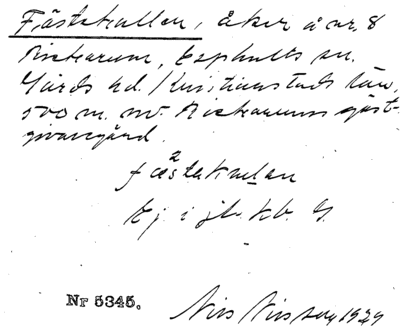 Fästekullen, åker å nr. 8
Rickarum, Äsphults sn.
Gärds hd. Kristianstads län,
500 m. nv. Rickarums gäst-
givaregård.
Ej i jb. kb. G.
Nr 5345.
Nils Nilsson 1929